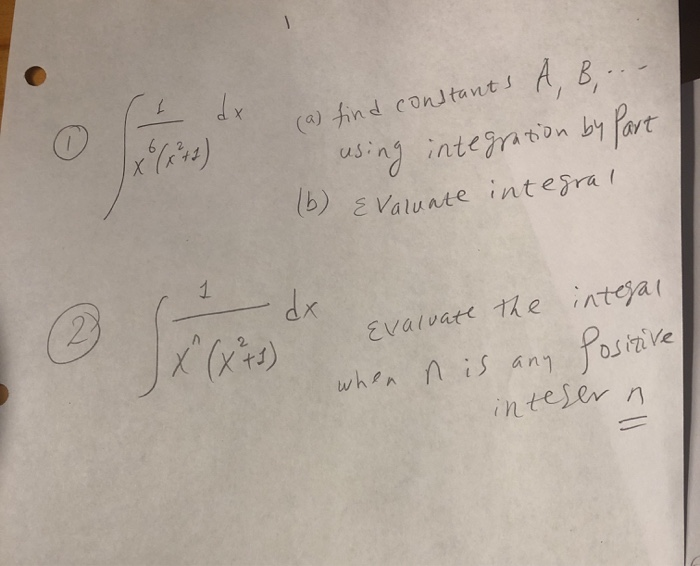 1
① ∫ 1/(x^6(x^2+1)) dx (a) find constants A, B, ...
using integration by Part
(b) Evaluate integral
② ∫ 1/(x^n(x^2+1)) dx Evaluate the integal
when n is any Positive
integer n